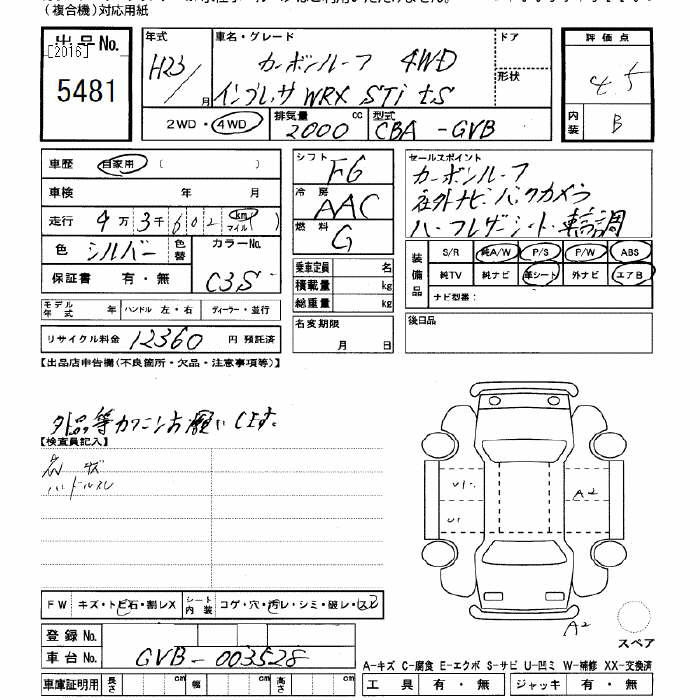 (複合機)対応用紙
出品No.
[2016]
5481
年式
H23/
月
車名・グレード
カーボンルーフ 4WD
インプレッサ WRX STi tS
ドア
形状
2WD・4WD
排気量 2000 cc
型式 CBA-GVB
評価点
4.5
内装
B
車歴 自家用 ( )
車検 年 月
走行 4万3千602 km マイル ( )
色 シルバー 色替 カラーNo.
保証書 有・無 C3S
モデル年式 年 ハンドル 左・右 ディーラー・並行
リサイクル料金 12360 円 預託済
シフト F6
冷房 AAC
燃料 G
乗車定員 名
積載量 kg
総重量 kg
名変期限
月 日
セールスポイント
カーボンルーフ
社外ナビ・バックカメラ
ハーフレザーシート・車高調
装備品
S/R 純A/W P/S P/W ABS
純TV 純ナビ 革シート 外ナビ エアB
ナビ型番:
後日品
【出品店申告欄(不良箇所・欠品・注意事項等)】
外品等カクニンお願いします。
【検査員記入】
ハンドルスレ
U1
U1
A2
A2
FW キズ・トビ石・割レX シート内装 コゲ・穴・汚レ・シミ・破レ・スレ
登録No.
車台No. GVB-003528
車庫証明用 長さ cm 幅 cm 高さ cm
スペア
A-キズ C-腐食 E-エクボ S-サビ U-凹ミ W-補修 XX-交換済
工具 有・無 ジャッキ 有・無